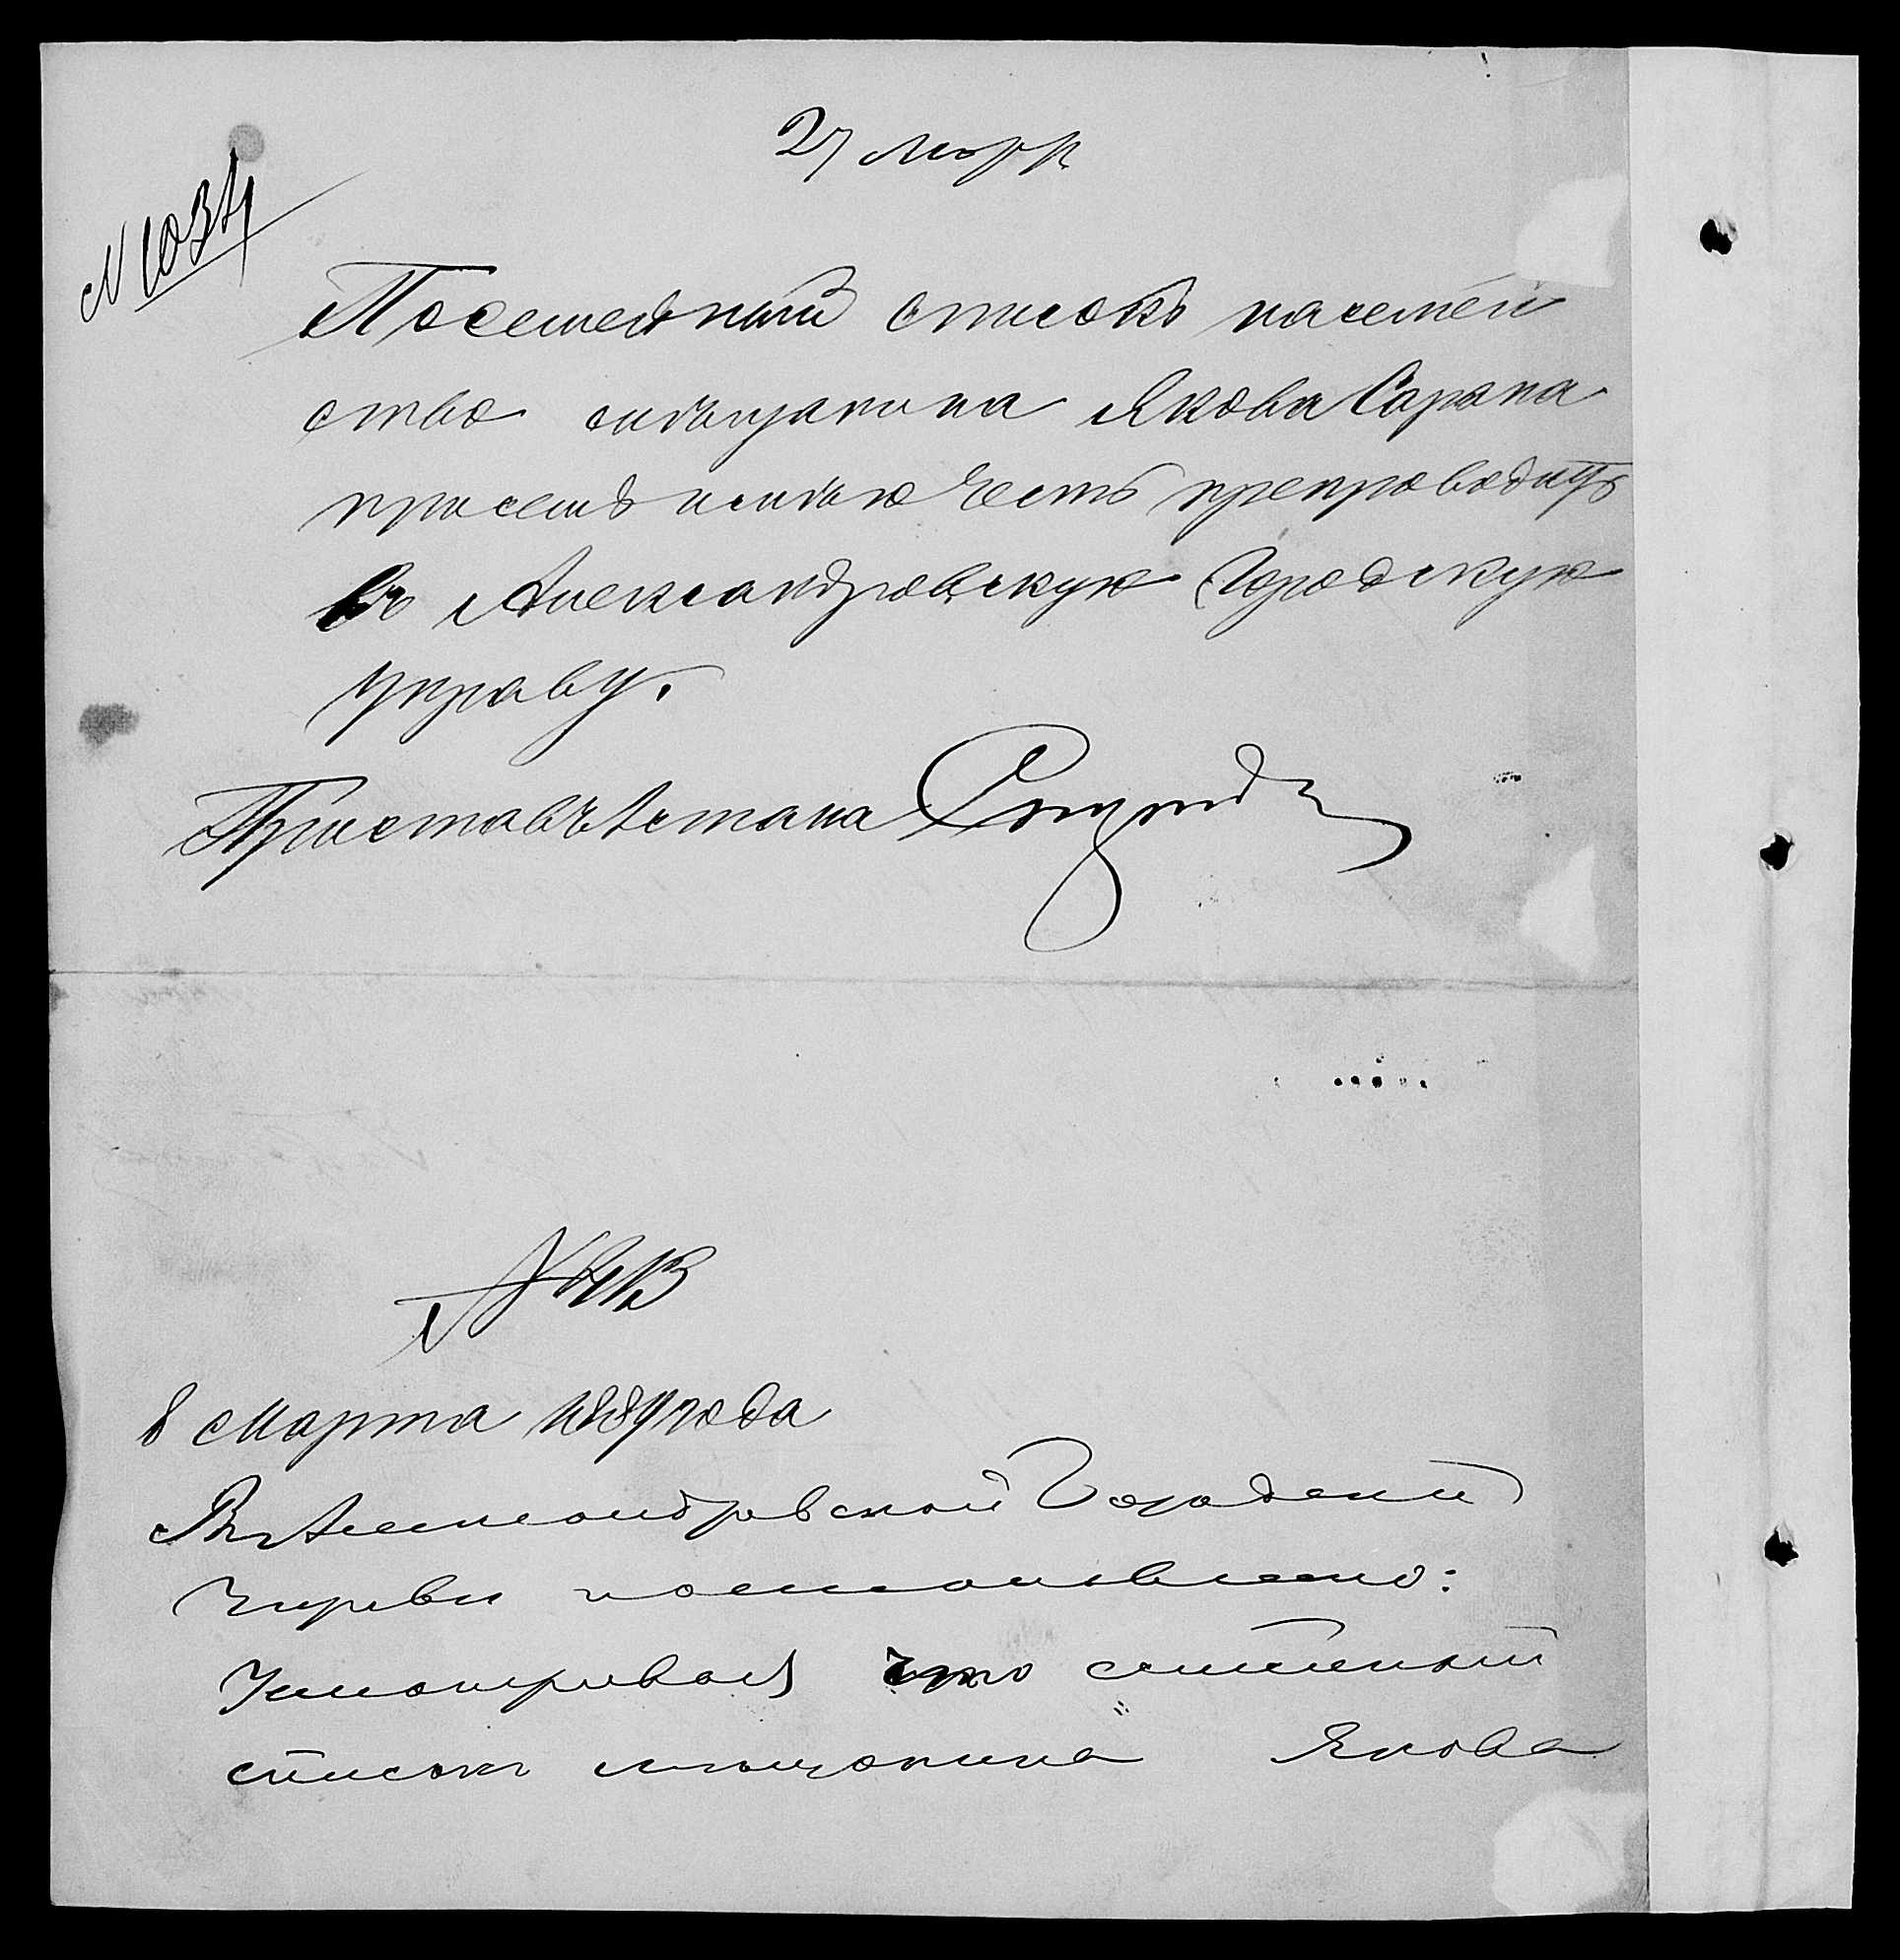 27 Март
N 1034
Посемейный списокъ на семей
ство мѣщанина Якова Сарана
при семъ имѣю честь препроводить
въ Александровскую Городскую
управу.
Приставъ 1 стана
8 Марта 1889 года
Въ Александровской Городской
Управѣ постановлено:
Усматривая что семейный
список мѣщанина Якова